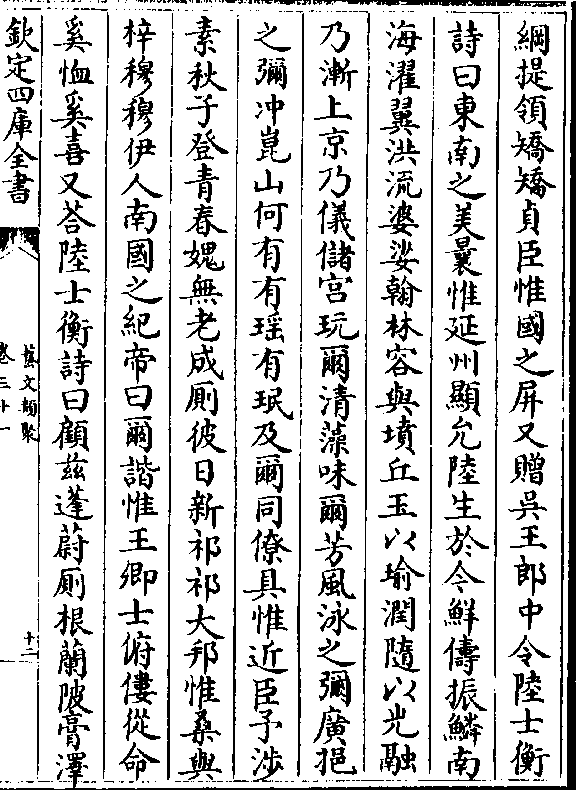 綱提領矯矯貞臣惟國之屏又贈吳王郎中令陸士衡
詩曰東南之美曩惟延州顯允陸生於今鮮儔振鱗南
海濯翼洪流婆娑翰林容與墳丘玉以瑜潤隨以光融
乃漸上京乃儀儲宮玩爾清藻味爾芳風泳之彌廣挹
之彌冲崑山何有有瑶有珉及爾同僚具惟近臣予涉
素秋子登青春媿無老成厠彼日新祁祁大邦惟桑與
梓穆穆伊人南國之紀帝曰爾諧惟王卿士俯僂從命
奚恤奚喜又荅陸士衡詩曰顧兹蓬蔚厠根蘭陂膏澤
欽定四庫全書
藝文類聚
卷三十一
十二